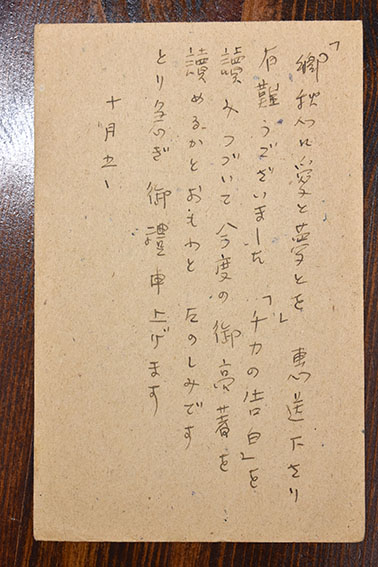 「郷愁に愛と夢とを」 惠送下さり
有難うございました 「チカの告白」を
讀みつづいて今度の御高著を
讀めるかとおもわと たのしみです
とり急ぎ 御禮申上げます
十月五日